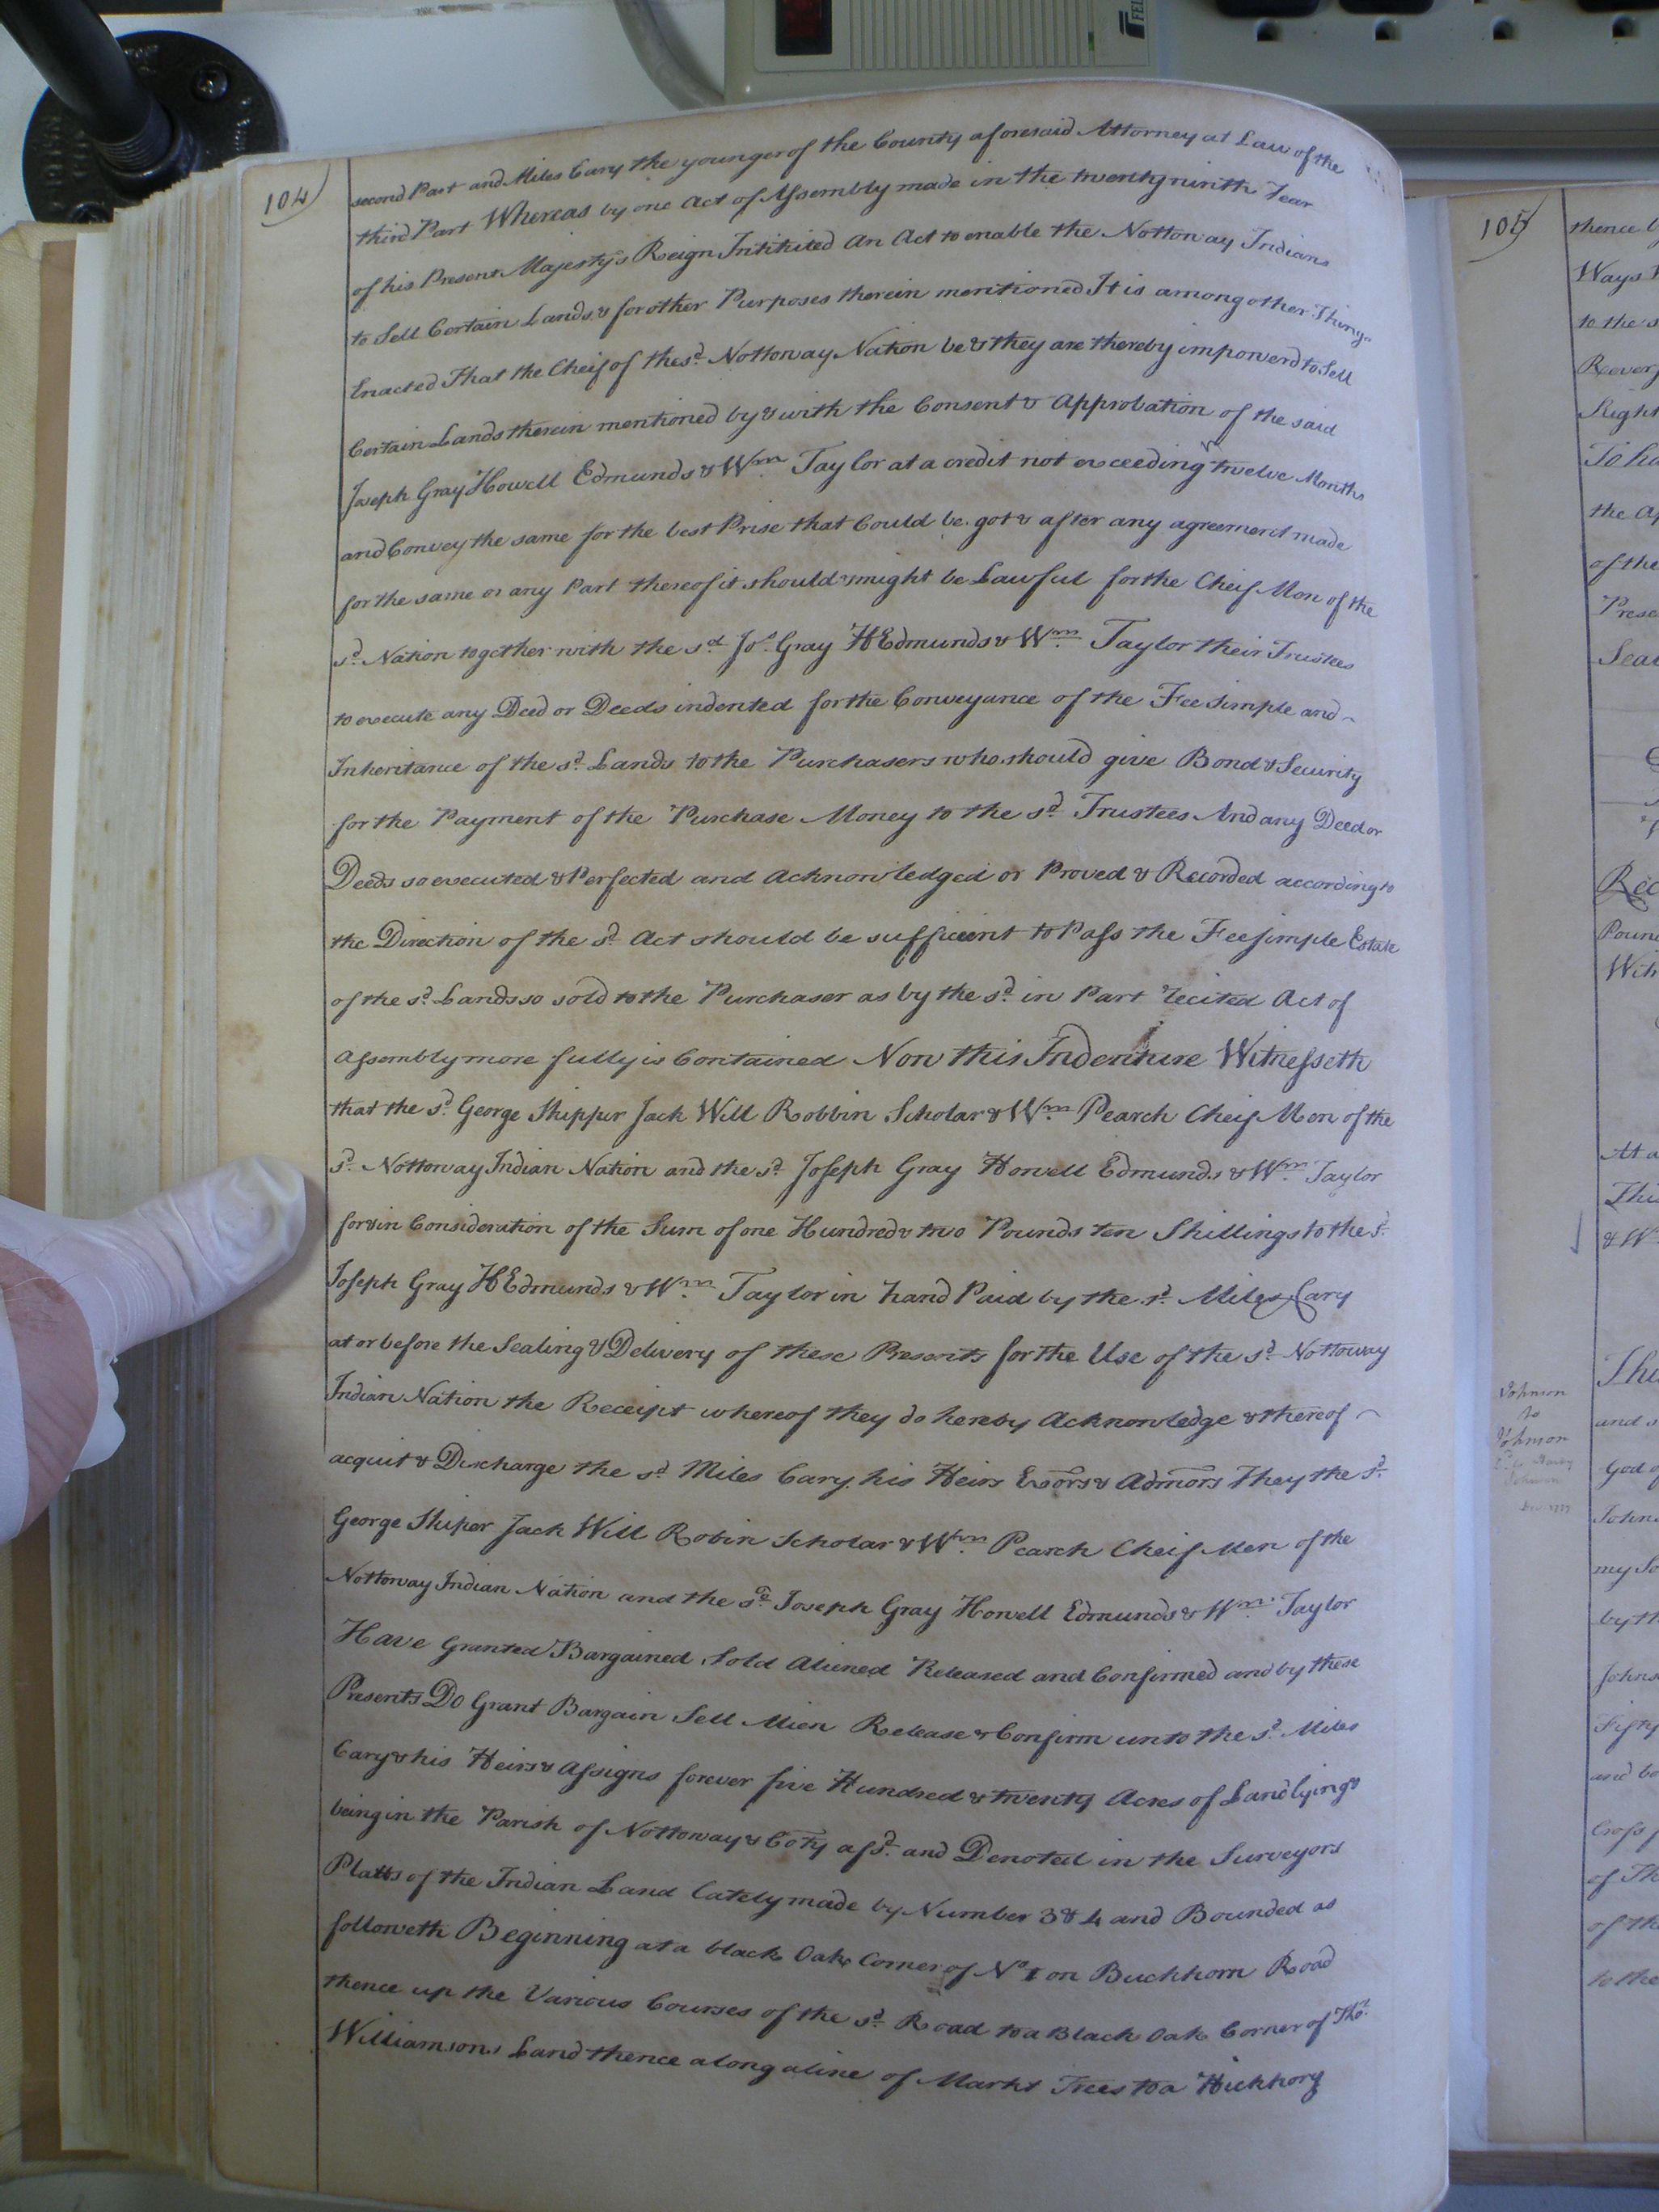 104)
second Part and Miles Cary the younger of the County aforesaid Attorney at Law of the
third Part Whereas by one Act of Assembly made in the twenty ninth Year
of his Present Majesty's Reign Intitited An Act to enable the Nottoway Indians
to Sell Certain Lands & for other Purposes therein mentioned It is among other Things
Enacted That the Cheif of the sd. Nottoway Nation be & they are thereby impowerd to Sell
Certain Lands therein mentioned by & with the Consent & Approbation of the said
Joseph Gray Howell Edmunds & Wm. Taylor at a credit not exceeding twelve Months
and Convey the same for the best Prise that Could be got & after any agreement made
for the same or any Part thereof it should & might be Lawful for the Cheif Men of the
sd. Nation together with the sd. Jos. Gray H Edmunds & Wm. Taylor their Trustees
to execute any Deed or Deeds indented for the Conveyance of the Fee Simple and
Inheritance of the sd. Lands to the Purchasers who should give Bond & Security
for the Payment of the Purchase Money to the sd. Trustees And any Deed or
Deeds so executed & Perfected and Acknowledged or Proved & Recorded according to
the Direction of the sd. Act should be sufficient to Pass the Feesimple Estate
of the sd. Lands so sold to the Purchaser as by the sd. in Part recited Act of
Assembly more fully is Contained Now this Indenture Witnesseth
that the sd. George Skipper Jack Will Robbin Scholar & Wm. Pearch Cheif Men of the
sd. Nottoway Indian Nation and the sd. Joseph Gray Howell Edmunds & Wm. Taylor
for & in Consideration of the Sum of one Hundred & two Pounds ten Shillings to the sd.
Joseph Gray H Edmunds & Wm. Taylor in hand Paid by the sd. Miles Cary
at or before the Sealing & Delivery of these Presents for the Use of the sd. Nottoway
Indian Nation the Receipt whereof they do hereby Acknowledge & thereof
acquit & Discharge the sd. Miles Cary his Heirs Exors & Admors They the sd.
George Skiper Jack Will Robin Scholar & Wm. Pearch Cheif Men of the
Nottoway Indian Nation and the sd. Joseph Gray Howell Edmunds & Wm. Taylor
Have Granted Bargained Sold Aliened Released and Confirmed and by these
Presents Do Grant Bargain Sell Alien Release & Confirm unto the sd. Miles
Cary & his Heirs & Assigns forever five Hundred & twenty Acres of Land lying &
being in the Parish of Nottoway & Coty afsd. and Denoted in the Surveyors
Platts of the Indian Land lately made by Number 3 & 4 and Bounded as
followeth Beginning at a black Oak Corner of No. 1 on Buckhorn Road
thence up the Various Courses of the sd. Road to a Black Oak Corner of Thos.
Williamsons Land thence along a line of Markt Trees to a Hickhory
105)
thence
Ways
to the
Right
the
of the
Johnson
to
Johnson
and
God of
by th
Fifty
and
of the
to the